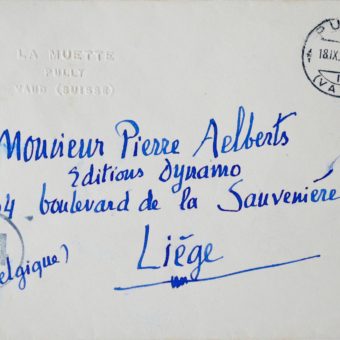 LA MUETTE
PULLY
VAUD (SUISSE)
PU
18.IX.
(VA
Monsieur Pierre Aelberts
Editions Dynamo
4 boulevard de la Sauvenière
Liège
elgique)